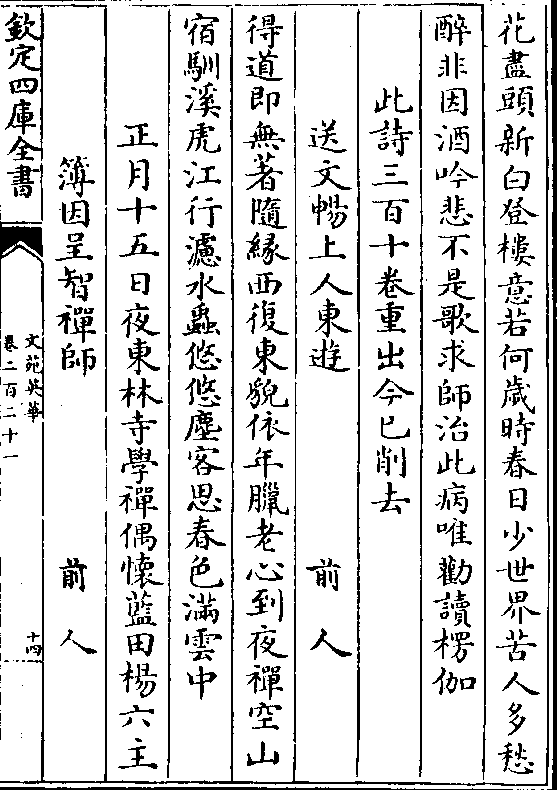 花盡頭新白登樓意若何歲時春日少世界苦人多愁
醉非因酒吟悲不是歌求師治此病唯勸讀楞伽
此詩三百十卷重出今已削去
送文暢上人東遊 前人
得道即無著隨緣西復東貌依年臘老心到夜禪空山
宿馴溪虎江行濾水蟲悠悠塵客思春色滿雲中
正月十五日夜東林寺學禪偶懷藍田楊六主
簿因呈智禪師 前人
欽定四庫全書
文苑英華
卷二百二十一
十四